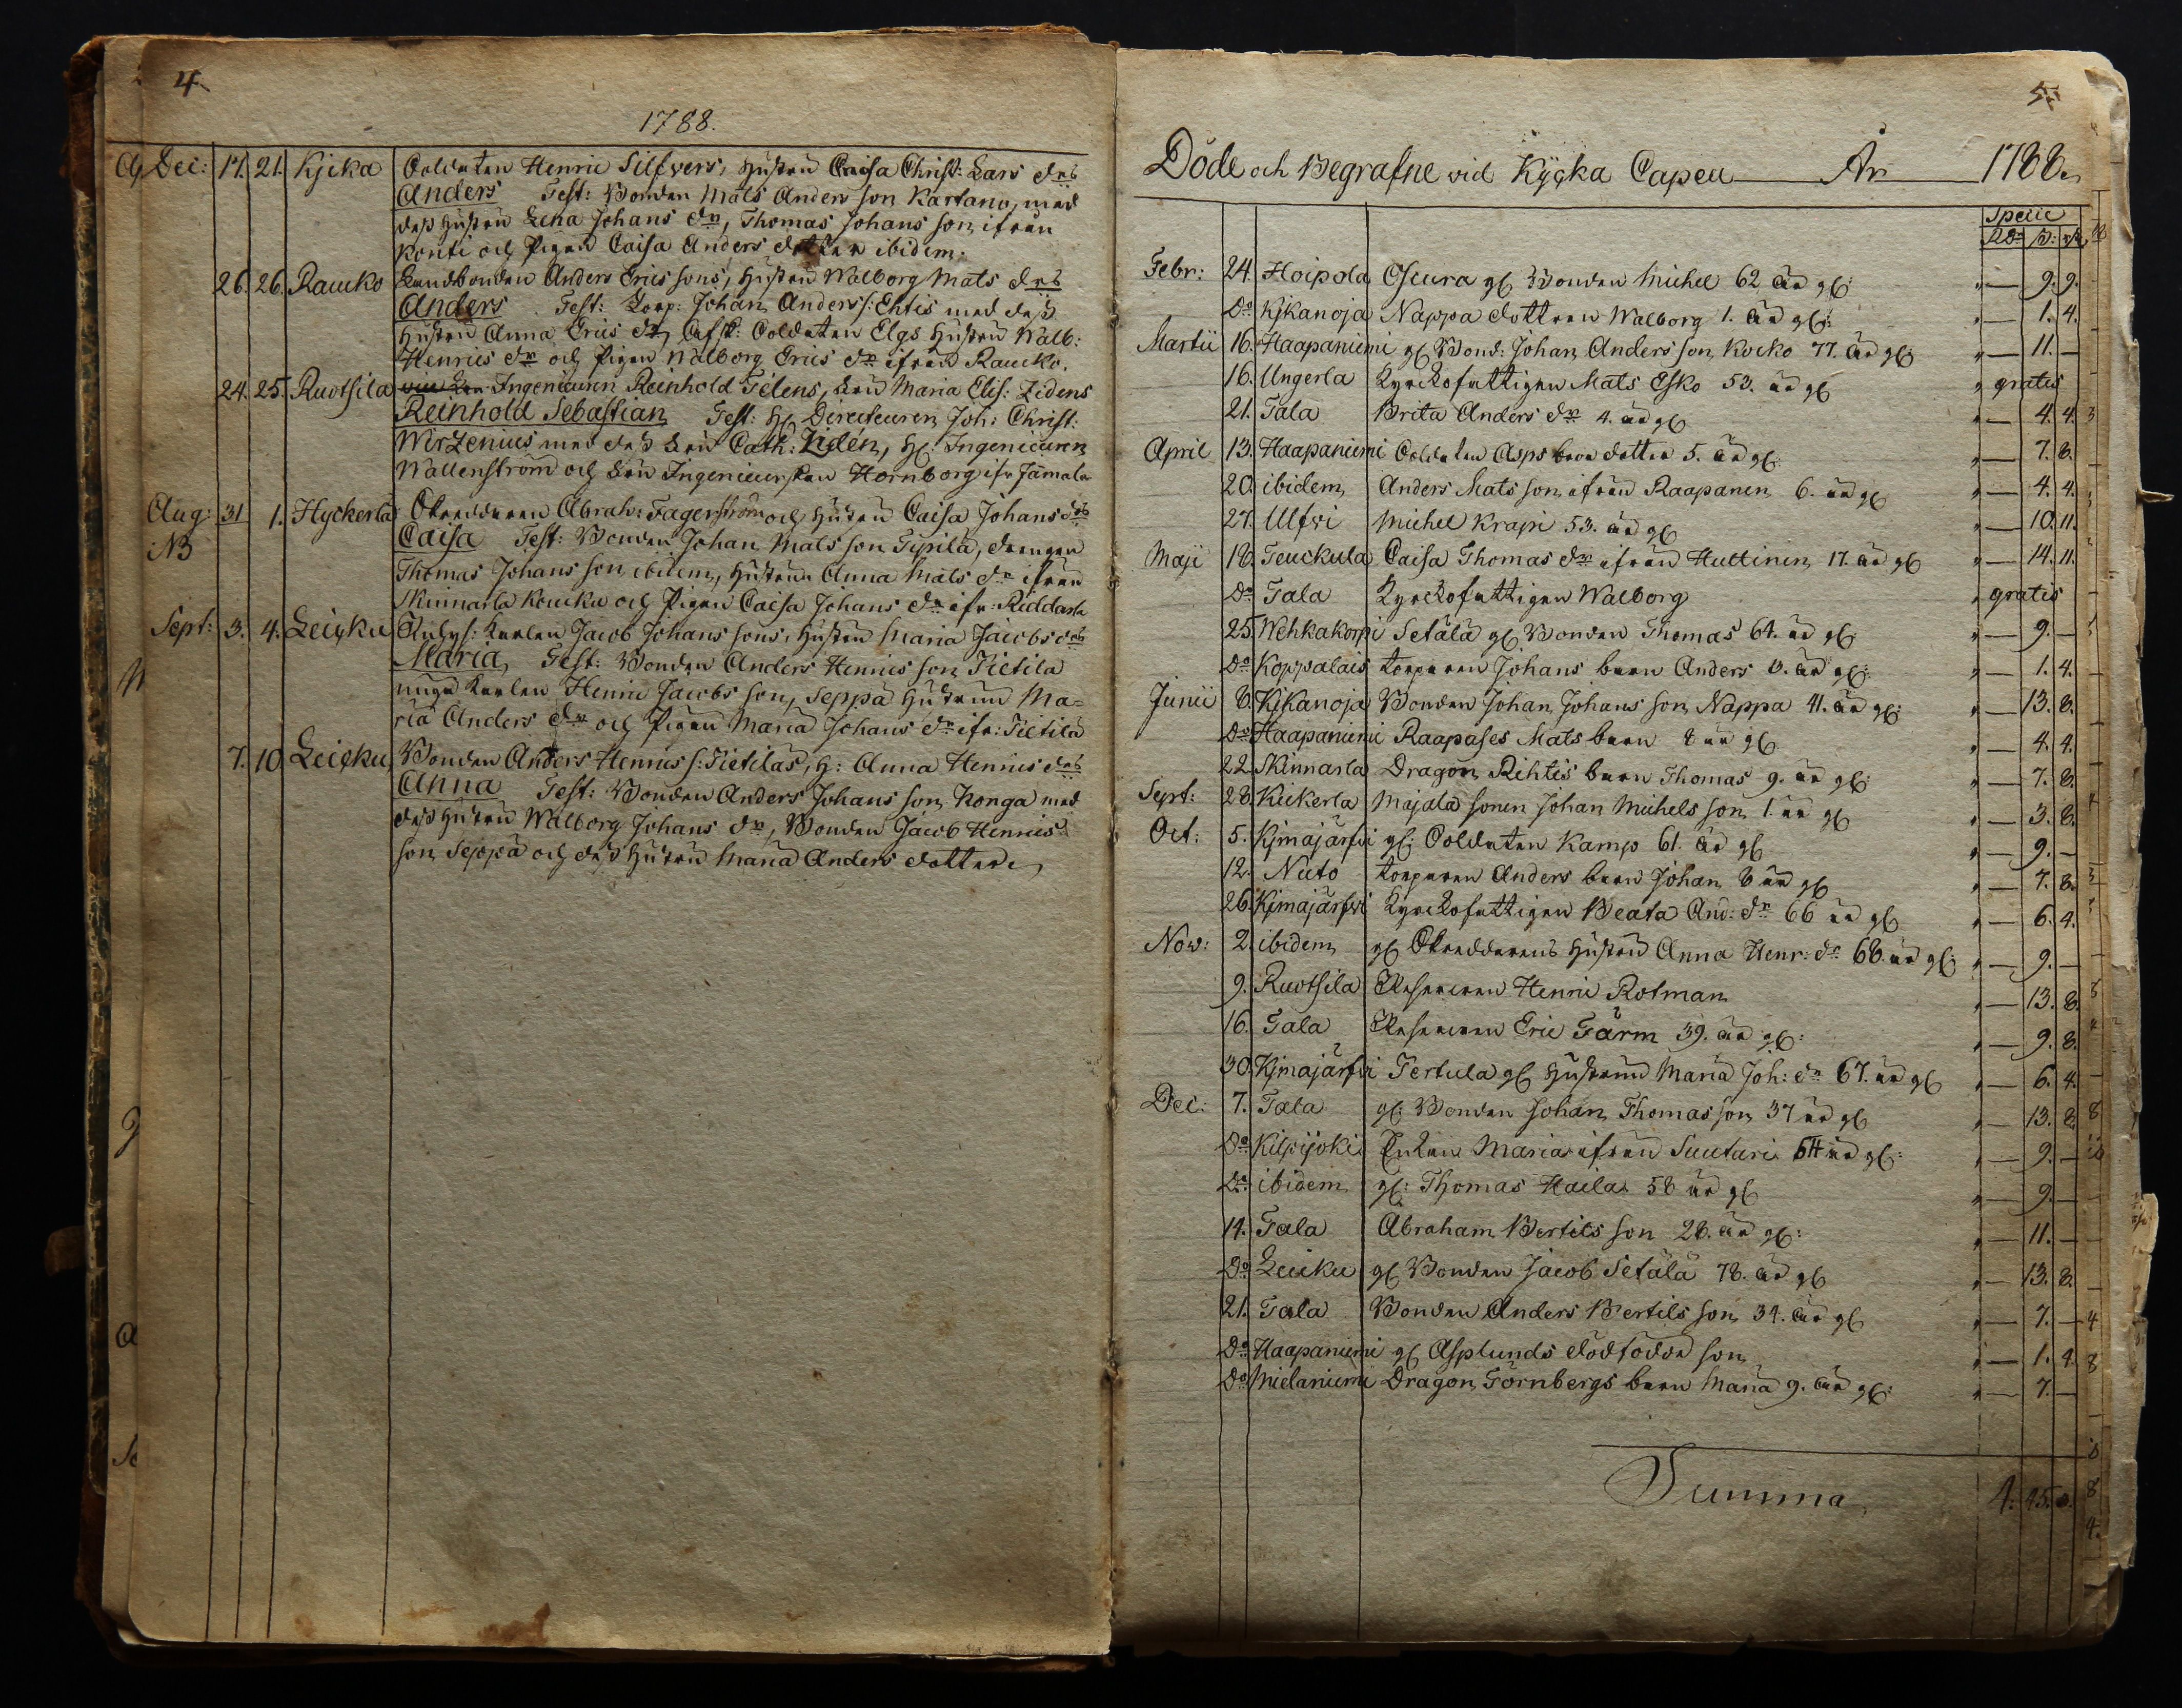 4
1788.
Dec: 17. 21. Kjcka Soldaten Henric Silfvers, hustru Caisa Christ: Lars drs
Anders Test: Bonden Mats Anders son Kartano, med
dess hustru Lena Johans dr, Thomas Johans son ifrån
Konti och Pigan Caisa Anders dotter ibidem.
26. 26. Raucko Landbonden Anders Erics sons, hustru Walborg Mats drs
Anders. Test: Torp: Johan Anders s: Ehtis med dess
hustru Anna Erics dr, Afsk: Soldaten Elgs hustru Walb:
Henrics dr och Pigan Walborg Erics dr ifrån Raucko.
24. 25. Ruotsila Ingenieuren Reinhold Telens, Fru Maria Elis: Zidens
Reinhold Sebastian Test: H. Directeuren Joh: Christ:
Wirzenius med dess Fru Cath: Zidén, H. Ingenieuren
Wallenström och Fru Ingenieurskan Hornborg ifr. Jämala
Aug: 31 1. Hyckerla Skräddaren Abrah: Fagerström och hustru Caisa Johans drs
NB Caisa Test: Bonden Johan Mats son Tipilä, drengen
Thomas Johans son ibidem, hustrun Anna Mats dr ifrån
Skinnarla Koucku och Pigan Caisa Johans dr ifr: Riddarla
Sept: 3. 4. Leicku Inhys: Karlen Jacob Johans sons, hustru Maria Jacobs drs
Maria, Test: Bonden Anders Henrics son Tietilä
unga Karlen Henric Jacobs son, Seppä hustrun Ma=
ria Anders dr och Pigan Maria Johans dr ifr: Tietilä
7. 10 Leicku Bonden Anders Henrics s: Tietiläs, H: Anna Henrics drs
Anna Test: Bonden Anders Johans son Konga med
dess hustru Walborg Johans dr, Bonden Jacob Henrics
son Seppä och dess hustru Maria Anders dotter
5
Döde och Begrafne vid Kycka Capell År 1788.
Specie
RD: S: rs
Febr: 24. Hoipola Oscura gl Bonden Michel 62 år gl: " — 9. 9.
Do Kjkanoja Nappa dottren Walborg 1. år gl: " — 1. 4.
Martii 16. Haapaniemi gl Bond: Johan Anders son Kocko 77. år gl: " — 11. —
16. Ungerla Kyrckofattigen Mats Esko 53. år gl " gratis
21. Tala Brita Anders dr 4. år gl " — 4. 4.
April 13. Haapaniemi Soldaten Asps dotter 5. år gl: " — 7. 8.
20. ibidem Anders Mats son ifrån Raapanen 6. år gl " — 4. 4.
27. Ulfwi Michel Krapi 53. år gl " — 10. 11.
Maji 18. Teuckula Caisa Thomas dr ifrån Huttinen 17. år gl " — 14. 11.
Do Tala Kyrckofattigen Walborg " gratis
25. Wehkakorpi Setälä gl Bonden Thomas 64. år gl: " — 9. —
Do Koppalais torparen Johans barn Anders 0. år gl: " — 1. 4.
Junii 8. Kjkanoja Bonden Johan Johans son Nappa 41. år gl: " — 13. 8.
Do Haapaniemi Raapases Mats barn 8 år gl " — 4. 4.
22. Skinnarla Dragon Rihtis barn Thomas 9. år gl: " — 7. 8.
Sept: 28. Kickerla Majala sonen Johan Michels son 1. år gl " — 3. 8.
Oct: 5. Kjmajärfvi gl: Soldaten Kamp 61. år gl " — 9. —
12. Nuto torparen Anders barn Johan 8 år gl " — 7. 8.
26. Kjmajärfvi Kyrckofattigen Beata And: dr 66 år gl " — 6. 4.
Nov: 2. ibidem gl Skräddarens hustru Anna Henr: dr 68. år gl: " — 9. —
9. Ruotsila Reserven Henric Rotman " — 13. 8.
16. Tala Reserven Eric Färm 39. år gl: " — 9. 8.
30. Kjmajärfvi Tertula gl hustrun Maria Joh: dr 67. år gl " — 6. 4.
Dec: 7. Tala gl: Bonden Johan Thomas son 37 år gl " — 13. 8.
Do Kilpijoki Enkan Maria ifrån Suutari 64 år gl: " — 9. —
Do ibidem gl: Thomas Haila 58 år gl " — 9. —
14. Tala Abraham Bertils son 28. år gl: " — 11. —
Do Leicku gl Bonden Jacob Setälä 78. år gl " — 13. 8.
21. Tala Bonden Anders Bertils son 34. år gl " — 7. —
Do Haapaniemi gl Asplunds dödfödde son " — 1. 4.
Do Mielaniemi Dragon Törnbergs barn Maria 9. år gl: " — 7. —
Summa 4: 45.